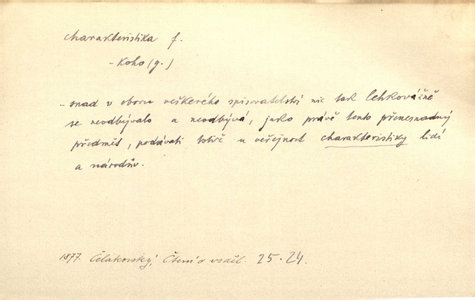 charakteristika f.
- koho (g.)
- snad v oboru veškerého spisovatelství nic tak lehkovážně
se neodbývalo a neodbývá, jako právě tento přenesnadný
předmět, podávati totiž u veřejnost charakteristiky lidí
a národův.
1877. Čelakovský, Čtení o vzděl. 25.24.